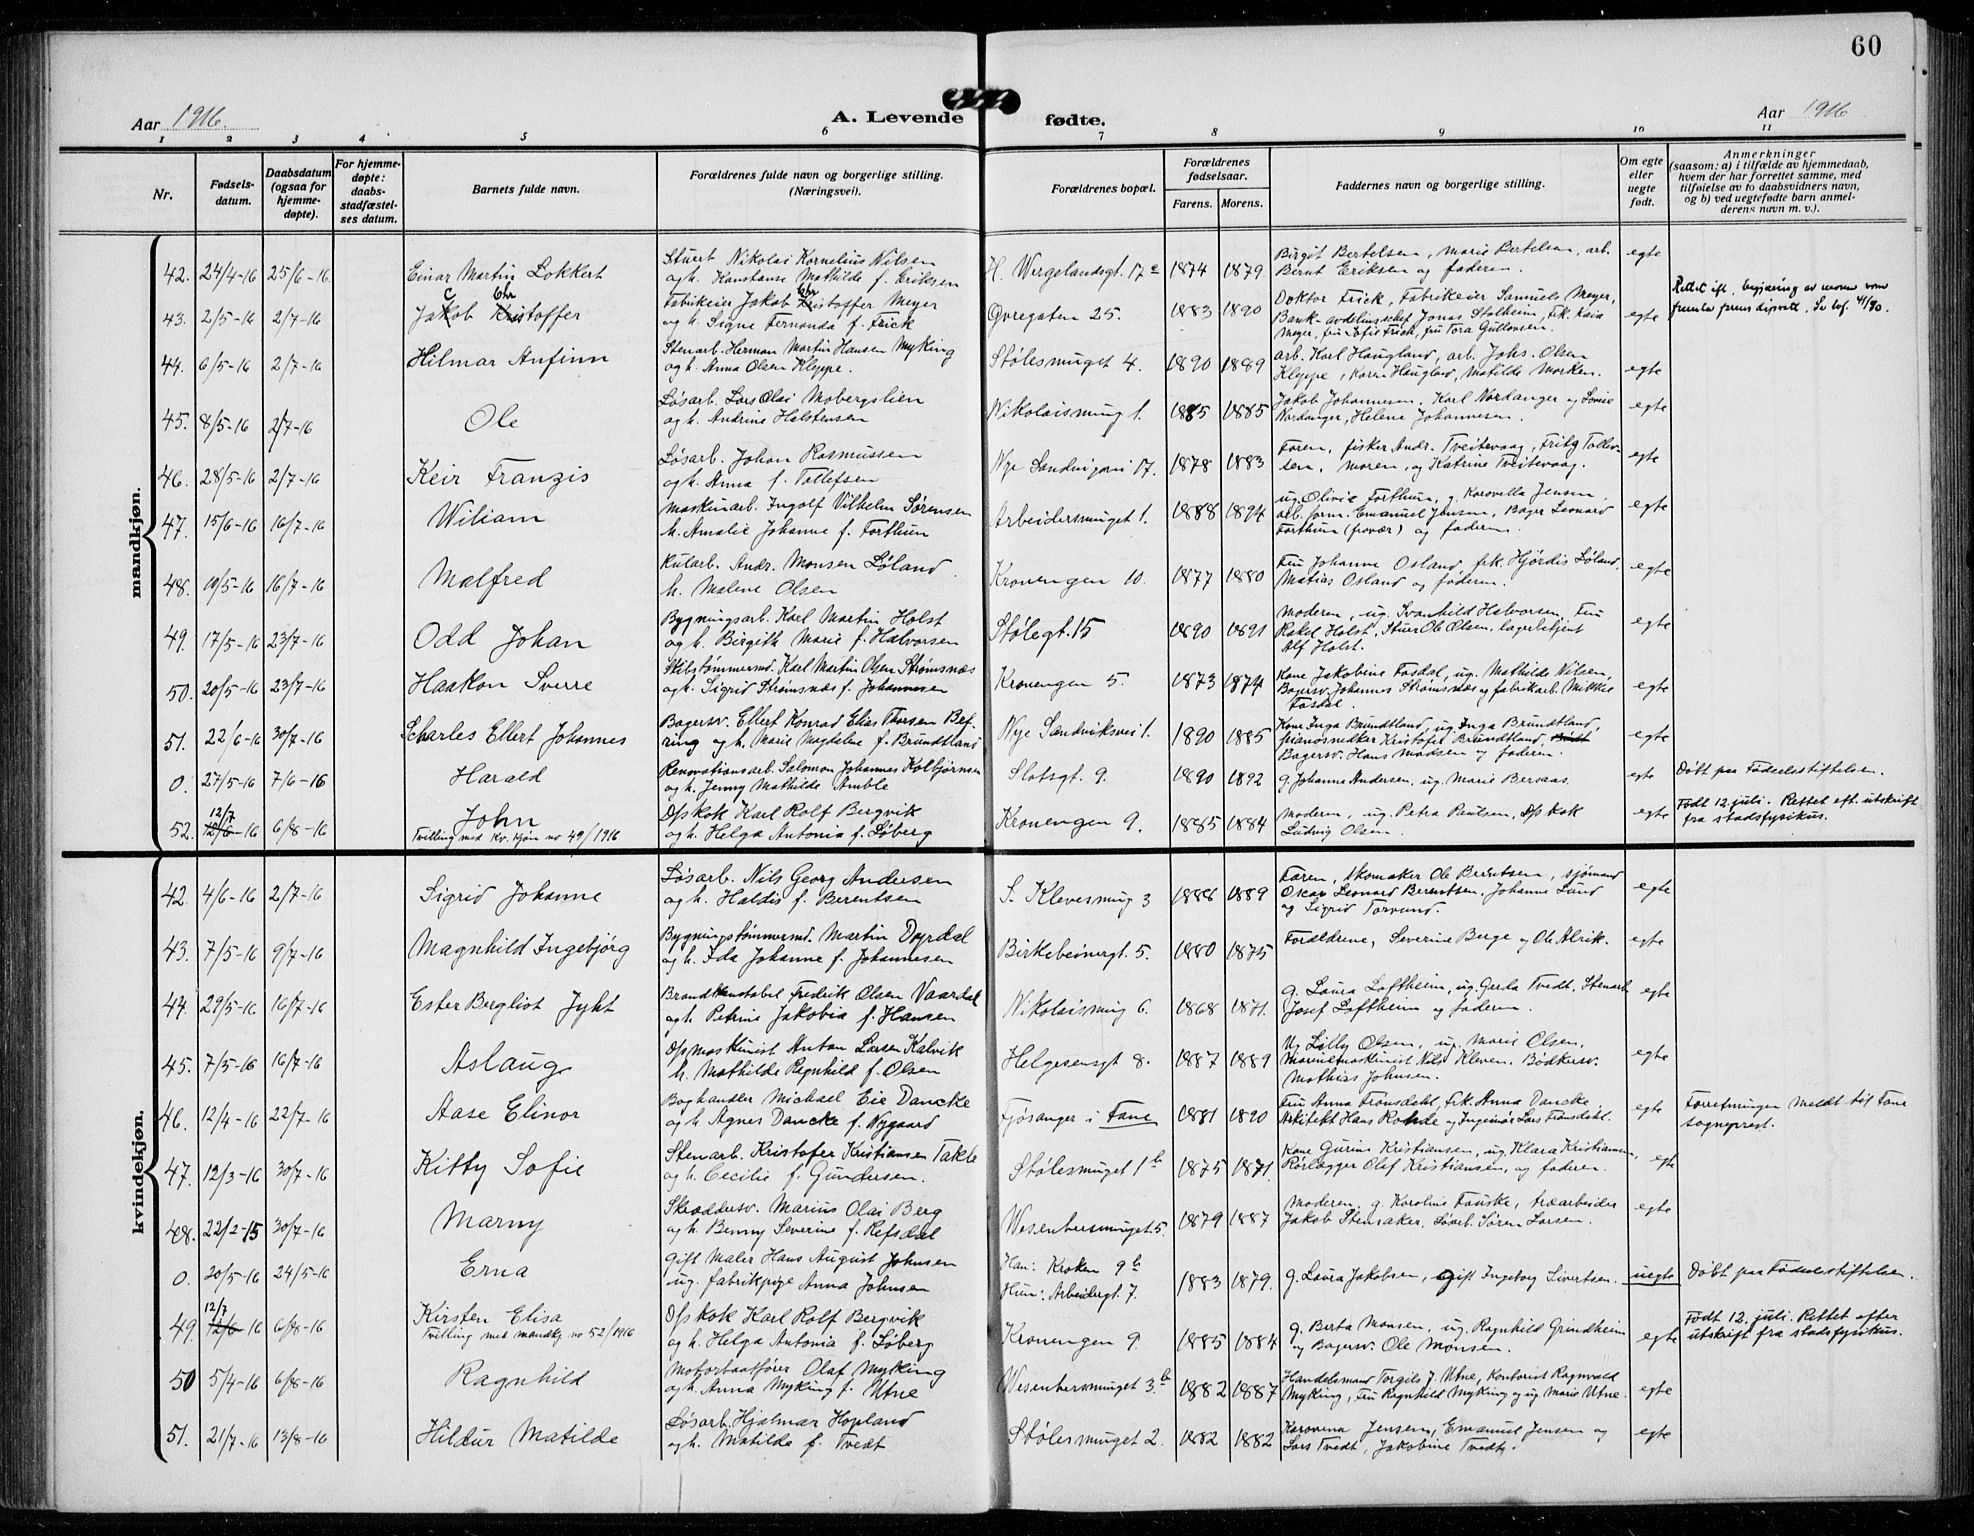 60
Aar 1916.
A. Levende fødte.
Aar 1916
1 2 3 4 5 6 7 8 9 10 11
Nr.
Fødsels-
datum.
Daabsdatum
(ogsaa for
hjemme-
døpte).
For hjemme-
døpte:
daabs-
stadfæstel-
ses datum.
Barnets fulde navn.
Forældrenes fulde navn og borgerlige stilling.
(Næringsvei).
Forældrenes bopæl.
Forældrenes
fødselsaar.
Farens. Morens.
Faddernes navn og borgerlige stilling.
Om egte
eller
uegte
født.
Anmerkninger
(saasom: a) i tilfælde av hjemmedaab,
hvem der har forrettet samme, med
tilføielse av to daabsvidners navn,
og b) ved uegtefødte barn anmel-
derens navn m. v.).
mandkjøn.
42. 24/4-16 25/6-16 Einar Martin Lokkert
Stuert Nikolai Kornelius Nilsen
og h. Konstanse Mathilde f. Eriksen
H. Wergelandsgt. 17a 1874 1879
Birgit Bertelsen, Marie Bertelsen, arb.
Bernt Eriksen og faderen.
egte
43. 2/5-16 2/7-16 Jakob Kristoffer
c Chr
Fabrikeier Jakob Kristoffer Meyer
Chr
og h. Signe Fernanda f. Frick
Øvregaten 25. 1883 1890
Doktor Frick, Fabrikeier Samuels Meyer,
Bank-avdelingschef Jonas Stalheim, frk. Kaia
Meyer, fru Sofie Frick, fru Tora Gullonsen.
egte
Rettet ift. begjæring av moren som
44. 6/5-16 2/7-16 Hilmar Anfinn
Stenarb. Herman Martin Hansen Myking
og h. Anna Olsen Kleppe.
Stølesmuget 4. 1890 1889
arb. Karl Haugland, arb. Johs. Olsen
Kleppe, Karen Haugland, Matilde Morken.
egte
45. 8/5-16 2/7-16 Ole
Løsarb. Lars Olai Mobergslien
og h. Andrine Halstensen
Nikolaismug 1. 1885 1885
Jakob Johannesen, Karl Nordanger og Lovise
Nordanger, Helene Johannesen.
egte
46. 28/5-16 2/7-16 Keir Franzis
Løsarb. Johan Rasmussen
og h. Anna f. Tollefsen
Nye Sandvigsvei 17. 1878 1883
Faren, fisker Andr. Tveitevaag, Fritz Tollev-
sen, moren, og Katrine Tveitevaag.
egte
47. 15/6-16 16/7-16 Wiliam
Maskinarb. Ingolf Vilhelm Sørensen
h. Amalie Johanne f. Forthun
Arbeidersmuget 1. 1888 1894
ug. Olivia Forthun, g. Karovella Jensen,
arb. form. Emanuel Jensen, Bager Leonard
Forthun (fravær) og faderen.
egte
48. 19/5-16 16/7-16 Malfred
Kularb. Andr. Monsen Løland
h. Malene Olsen
Kronengen 10. 1877 1880
Fru Johanne Osland, frk. Hjørdis Løland,
Matias Osland og faderen.
egte
49. 17/5-16 23/7-16 Odd Johan
Bygningsarb. Karl Martin Holst
og h. Birgith Marie f. Halvorsen
Stølegt. 15 1890 1891
Moderen, ug. Svanhild Halvorsen, Fru
Rakel Holst, Stuer Ole Olsen, lagerbetjent
Alf Holst.
egte
50. 20/5-16 23/7-16 Haakon Sverre
Skibstømmermd. Karl Martin Olsen Strømsnæs
og h. Sigrid Strømsnæs f. Johannesen
Kronengen 5. 1873 1874
Kone Jakobine Fosdal, ug. Mathilde Nilsen,
Bagersv. Johannes Strømsnæs og fabrikarb. Mikkel
Fosdal.
egte
51. 22/6-16 30/7-16 Scharles Ellert Johannes
Bagersv. Ellert Konrad Elias Thorsen Bef-
ring og h. Marie Magdalene f. Brundtland
Nye Sandviksvei 1. 1890 1885
Kone Inga Brundtland, ug. Inga Brundtland,
pianosnedker Kristofer Brundtland,
Bagersv. Hans Madsen og faderen.
egte
0. 27/5-16 7/6-16 Harald
Renovationsarb. Salomon Johannes Kolbjørnsen
og h. Jenny Mathilde Amble
Slotsgt. 9. 1890 1892
g. Johanne Andersen, ug. Marie Bersaas.
egte
Døbt paa Fødselsstiftelsen.
52. 12/7 12/6-16 6/8-16 John
Tvilling med Kv. kjøn no 49/1916
Dpskok Karl Rolf Bergvik
og h. Helga Antonia f. Søberg
Kronengen 9. 1885 1884
Moderen, ug. Petra Paulsen, Dpskok
Ludvig Olsen.
egte
Født 12. juli. Rettet eft. utskrift
fra stadsfysikus.
kvindekjøn.
42. 4/6-16 2/7-16 Sigrid Johanne
Løsarb. Nils Georg Andersen
og h. Haldis f. Berentsen
S. Klevesmug 3 1888 1889
Faren, skomaker Ole Berentsen, sjømand
Oscar Leonard Berentsen, Johanne Lund
og Sigrid Torvund.
egte
43. 7/5-16 9/7-16 Magnhild Ingebjørg
Bygningstømmermd. Martin Dyrdal
og h. Ida Johanne f. Johannesen
Birkebeinergt. 5. 1880 1875
Forældrene, Severine Berge og Ole Alrik.
egte
44. 29/5-16 16/7-16 Ester Bergliot Jykt
Brandkonstabel Fredrik Olsen Vaardal
og h. Petrine Jakobia f. Hansen
Nikolaismug 6. 1868 1871.
g. Laura Loftheim, ug. Gerda Tvedt, Stenarb.
Josef Loftheim og faderen.
egte
45. 7/5-16 16/7-16 Aslaug
Dpmaskinist Anton Larsen Kalvik
h. Mathilde Ragnhild f. Olsen
Helgesensgt 8. 1887 1889
Ug Lilly Olsen, ug. Marie Olsen,
Marinemaskinist Nils Kleven. Bødkersv.
Mathias Johnsen.
egte
46. 12/4-16 22/7-16 Aase Elinor
Boghandler Michael Eie Dancke
og h. Agnes Dancke f. Nygaard
Fjøsanger i Fane 1881 1890
Fru Anna Fransdahl, frk. Anna Dancke,
Arkitekt Hans Rohde og Ingeniør Lars Fransdahl.
egte
Forretningen meldt til Fane
sogneprest.
47. 12/3-16 30/7-16 Kitty Sofie
Stenarb. Kristofer Kristiansen Takle
og h. Cecilie f. Gundersen.
Stølesmuget 1b 1875 1871.
Kone Gurine Kristiansen, ug. Klara Kristiansen,
Rørlægger Olaf Kristiansen, og faderen.
egte
48. 22/2-15 30/7-16 Marny
Skræddersv. Marius Olai Berg
og h. Benny Severine f. Refsdal
Wesenbersmuget 5. 1879 1887
Moderen, g. Karoline Fauske, træarbeider
Jakob Stensaker, Løsarb. Søren Larsen.
egte
0. 20/5-16 24/5-16 Erna
Gift Maler Hans August Johnsen
ug. fabrikpige Anna Johnsen
Han: Kroken 9b
Hun: Arbeidergt 7. 1883 1879.
g. Laura Jakobsen, gift Ingeborg Sivertsen.
uegte
Døbt paa Fødselsstiftelsen.
49. 12/7 12/6-16 6/8-16 Kirsten Elisa
Tvilling med mandkj no 52/1916
Dpskok Karl Rolf Bergvik
og h. Helga Antonia f. Søberg
Kronengen 9. 1885 1884
g. Berta Monsen, ug. Ragnhild Grindheim
og Bagersv. Ole Monsen.
egte
Født 12. juli. Rettet efter
utskrift fra stadsfysikus.
50 5/4-16 6/8-16 Ragnhild
Motorbaatfører Olaf Myking
og h. Anna Myking f. Utne
Wesenbersmuget 3b 1882 1887
Handelsmand Torgils J. Utne, kontorist Ragnvald
Myking, Fru Ragnhild Myking og ug Marie Utne.
egte
51. 21/7-16 13/8-16 Hildur Matilde
Løsarb. Hjalmar Hopland
og h. Matilde f. Tvedt
Stølesmuget 2. 1882 1882
Karovena Jensen, Emanuel Jensen og
Lars Tvedt, Jakobine Tvedt.
egte